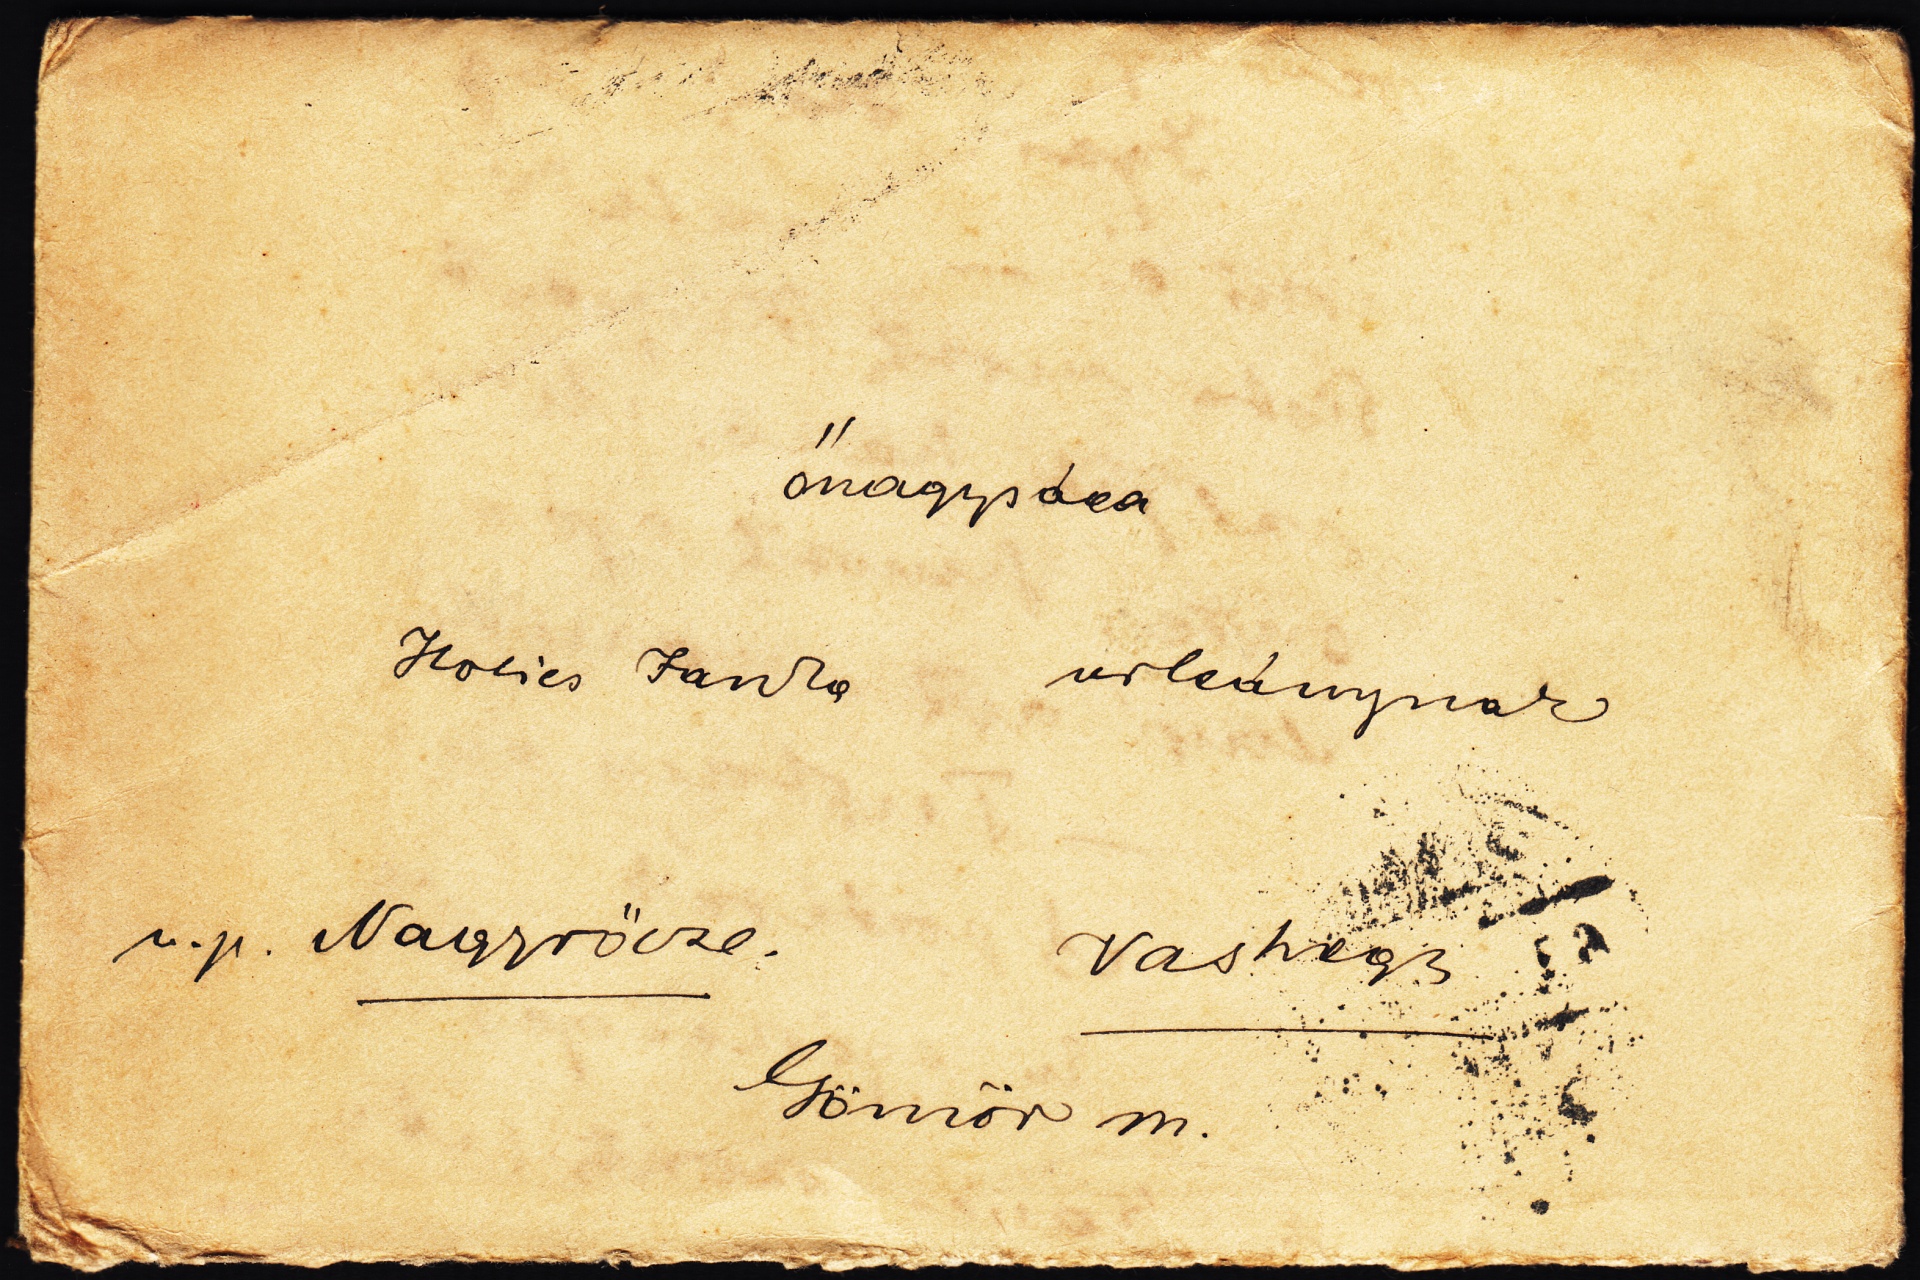 őnagysága
Holics Janka urleánynak
u.p. Nagyrőcze. Vashegy
Gömör m.